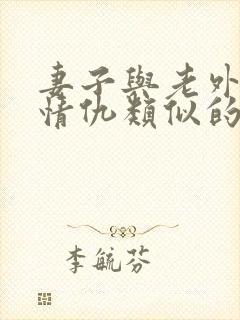 妻子與老外
情仇類似的
李毓芬